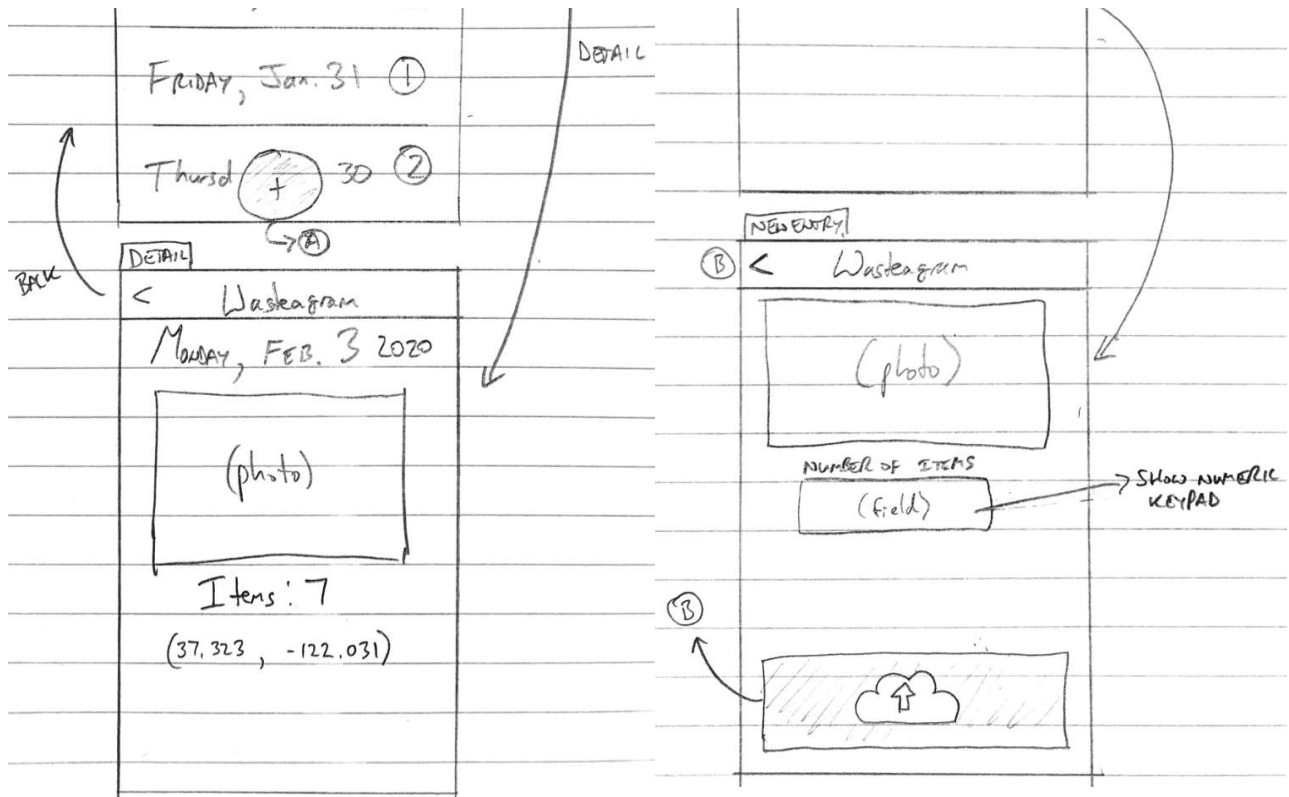 FRIDAY, Jan. 31 1
Thursd + 30 2
A
DETAIL
BACK
DETAIL
< Wasteagram
MONDAY, FEB. 3 2020
(photo)
Items: 7
(37.323, -122.031)
NEW ENTRY
B < Wasteagram
(photo)
NUMBER OF ITEMS
(field)
SHOW NUMERIC
KEYPAD
B